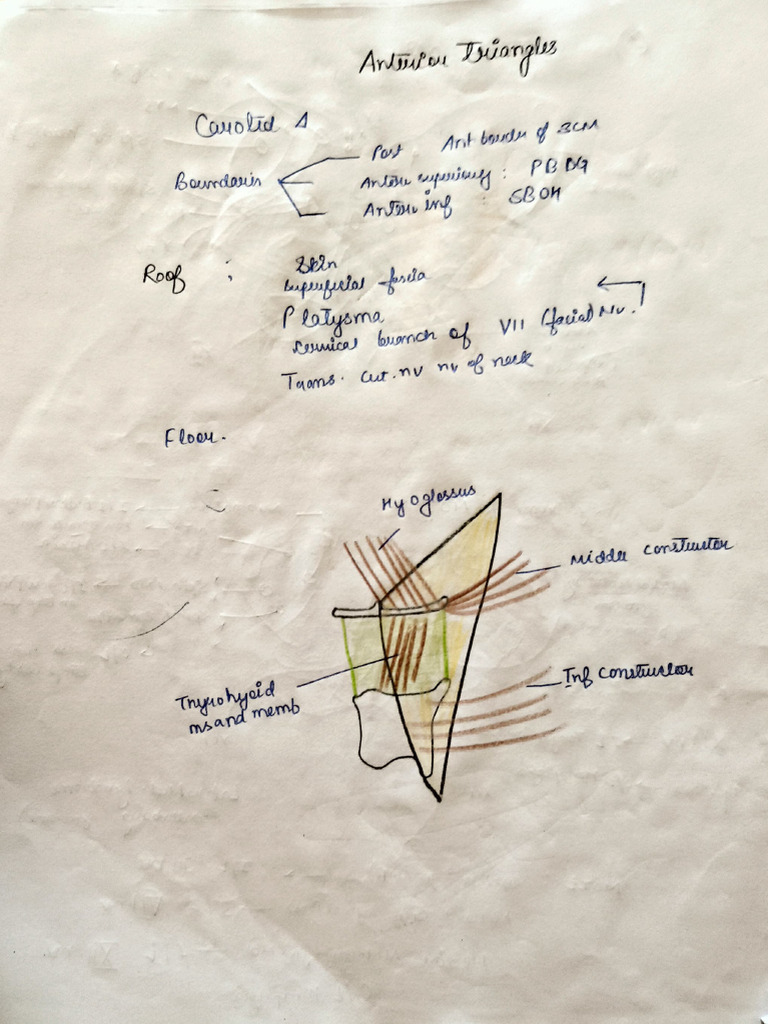 Anterior Triangles
Carotid Δ
Boundaries
Post Ant border of SCM
Antero superiorly : PBDG
Antero inf : SBOH
Roof :
Skin
Superficial fascia
Platysma
Cervical branch of VII (facial Nv.)
Trans. cut. nv nv of neck
Floor.
Hyoglossus
Middle constrictor
Inf constrictor
Thyrohyoid
ms and memb